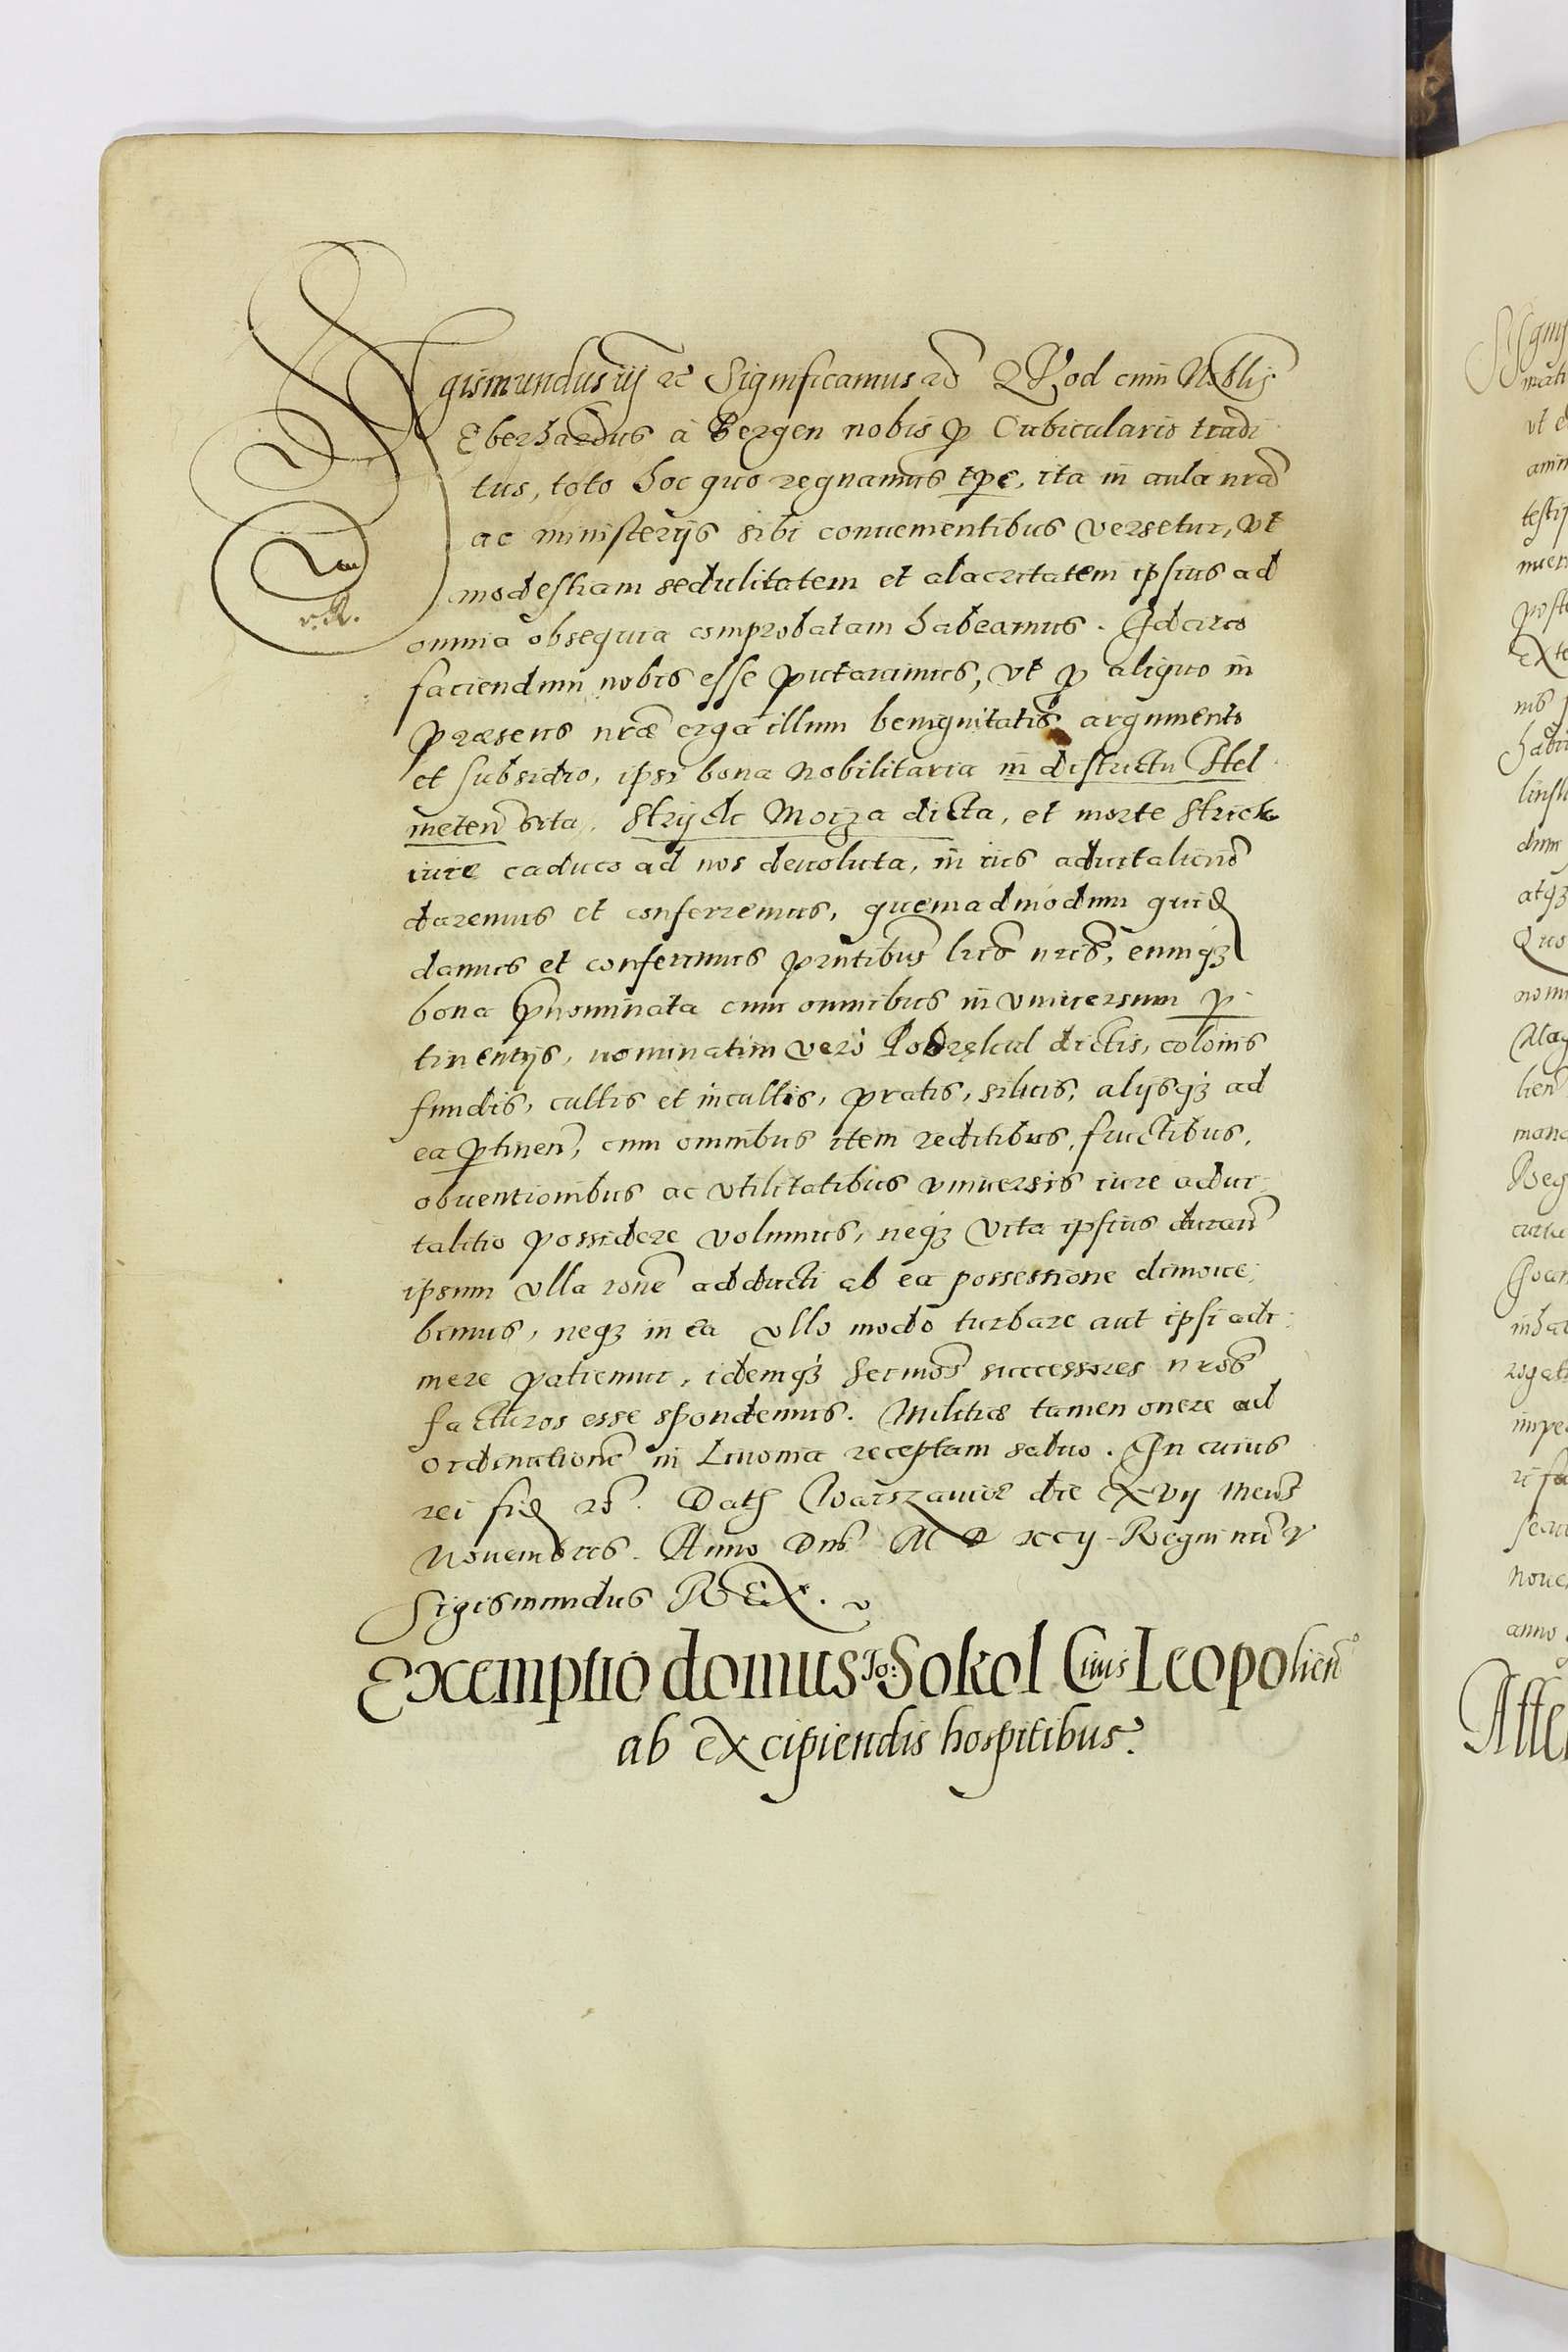 Sigismundus iij etc Significamus etc Quod cum Noblis
Eberhardus à Bergen nobis p Cubiculario tradi
tus, toto hoc quo regnamus tpe, ita in aula nra
ac ministerijs sibi conuenientibus versetur, vt
modestiam sedulitatem et alacritatem ipsius ad
omnia obsequia comprobatam habeamus. Idcirco
faciendum nobis esse putauimus, vt p aliquo in
præsens nræ erga illum benignitatis argumento
et subsidio, ipsi bona Nobilitaria in districtu Hel
meten sita, Strijck Moiza dicta, et morte Strick
iure caduco ad nos deuoluta, in ius aduitalium
daremus et conferremus, quemadmodum quid
damus et conferimus pntibus lris nris, eumqz
bona pnominata cum omnibus in vniuersum p
tinentijs, nominatim vero dictis, colonis
fundis, cultis et incultis, pratis, siluis, alijsqz ad
ea ptinen, cum omnibus item reditibus, fructibus,
obuentionibus ac vtilitatibus vniuersis iure adui
talitio possidere volumus, neqz vita ipsius duran
ipsum vlla rone adducti ab ea possessione dimoue
bimus, neqz in ea vllo modo turbare aut ipsi adi
mere patiemur, idemqz sermos successores nros
facturos esse spondemus. Militiæ tamen onere ad
ordinatione in Liuonia receptam saluo. In cuius
rei fid etc. Dat Warszauiæ die xvij Mens
Nouembris. Anno Dni M D xcij Regni nri v
Sigismundus REX.
Exemptio domus Jo: Sokol Ciuis Leopolien
ab excipiendis hospitibus.
v. R.